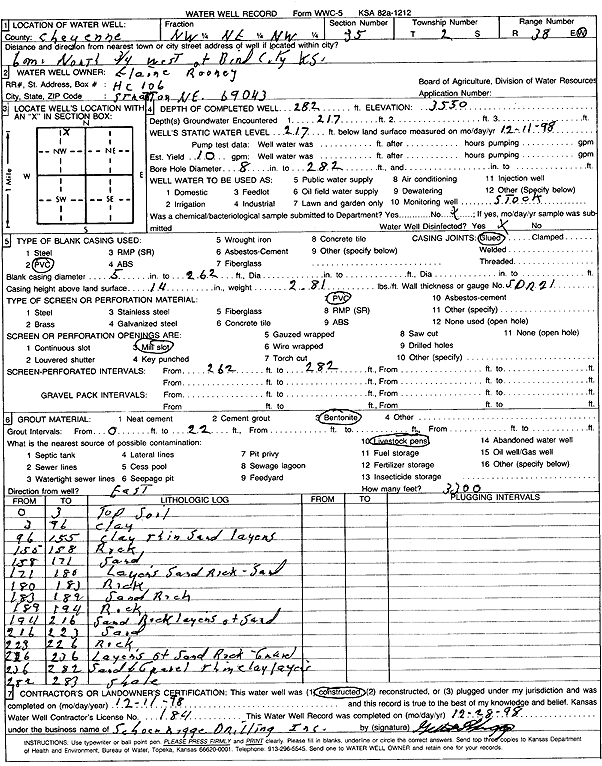 WATER WELL RECORD Form WWC-5 KSA 82a-1212
1 LOCATION OF WATER WELL: Fraction Section Number Township Number Range Number
County: Cheyenne NW ¼ NE ¼ NW ¼ 35 T 2 S R 38 E(W)
Distance and direction from nearest town or city street address of well if located within city?
6 mi North ¼ west of Bird City KS.
2 WATER WELL OWNER: Elaine Rooney
RR#, St. Address, Box # : HC 106 Board of Agriculture, Division of Water Resources
City, State, ZIP Code : Stratton NE. 69043 Application Number:
3 LOCATE WELL'S LOCATION WITH AN "X" IN SECTION BOX:
N
X
NW NE
W E
SW SE
S
1 Mile
4 DEPTH OF COMPLETED WELL 282 ft. ELEVATION: 3550
Depth(s) Groundwater Encountered 1. 217 ft. 2. ft. 3. ft.
WELL'S STATIC WATER LEVEL 217 ft. below land surface measured on mo/day/yr 12-11-98
Pump test data: Well water was ft. after hours pumping gpm
Est. Yield 10 gpm: Well water was ft. after hours pumping gpm
Bore Hole Diameter 8 in. to 282 ft., and in. to ft.
WELL WATER TO BE USED AS: 5 Public water supply 8 Air conditioning 11 Injection well
1 Domestic 3 Feedlot 6 Oil field water supply 9 Dewatering 12 Other (Specify below)
2 Irrigation 4 Industrial 7 Lawn and garden only 10 Monitoring well STOCK
Was a chemical/bacteriological sample submitted to Department? Yes No X; If yes, mo/day/yr sample was submitted
Water Well Disinfected? Yes X No
5 TYPE OF BLANK CASING USED: 5 Wrought iron 8 Concrete tile CASING JOINTS: Glued Clamped
1 Steel 3 RMP (SR) 6 Asbestos-Cement 9 Other (specify below) Welded
2 PVC 4 ABS 7 Fiberglass Threaded
Blank casing diameter 5 in. to 262 ft., Dia in. to ft., Dia in. to ft.
Casing height above land surface 14 in., weight 2.81 lbs./ft. Wall thickness or gauge No. SDR21
TYPE OF SCREEN OR PERFORATION MATERIAL: 7 PVC 10 Asbestos-cement
1 Steel 3 Stainless steel 5 Fiberglass 8 RMP (SR) 11 Other (specify)
2 Brass 4 Galvanized steel 6 Concrete tile 9 ABS 12 None used (open hole)
SCREEN OR PERFORATION OPENINGS ARE: 5 Gauzed wrapped 8 Saw cut 11 None (open hole)
1 Continuous slot 3 Mill slot 6 Wire wrapped 9 Drilled holes
2 Louvered shutter 4 Key punched 7 Torch cut 10 Other (specify)
SCREEN-PERFORATED INTERVALS: From 262 ft. to 282 ft., From ft. to ft.
From ft. to ft., From ft. to ft.
GRAVEL PACK INTERVALS: From ft. to ft., From ft. to ft.
From ft. to ft., From ft. to ft.
6 GROUT MATERIAL: 1 Neat cement 2 Cement grout 3 Bentonite 4 Other
Grout Intervals: From 0 ft. to 22 ft., From ft. to ft., From ft. to ft.
What is the nearest source of possible contamination: 10 Livestock pens 14 Abandoned water well
1 Septic tank 4 Lateral lines 7 Pit privy 11 Fuel storage 15 Oil well/Gas well
2 Sewer lines 5 Cess pool 8 Sewage lagoon 12 Fertilizer storage 16 Other (specify below)
3 Watertight sewer lines 6 Seepage pit 9 Feedyard 13 Insecticide storage
Direction from well? East How many feet? 3200
FROM TO LITHOLOGIC LOG FROM TO PLUGGING INTERVALS
0 3 Top Soil
3 96 Clay
96 155 Clay thin Sand layers
155 158 Rock
158 171 Sand
171 180 Layers Sand Rock-Sand
180 183 Rock
183 189 Sand Rock
189 194 Rock
194 216 Sand Rock layers of Sand
216 223 Sand
223 226 Rock
226 236 Layers of Sand Rock-Gravel
236 282 Sand & Gravel thin clay layers
282 283 Shale
7 CONTRACTOR'S OR LANDOWNER'S CERTIFICATION: This water well was (1) constructed, (2) reconstructed, or (3) plugged under my jurisdiction and was
completed on (mo/day/year) 12-11-98 and this record is true to the best of my knowledge and belief. Kansas
Water Well Contractor's License No. 184 This Water Well Record was completed on (mo/day/yr) 12-28-98
under the business name of Schoenrogge Drilling Inc. by (signature)
INSTRUCTIONS: Use typewriter or ball point pen. PLEASE PRESS FIRMLY and PRINT clearly. Please fill in blanks, underline or circle the correct answers. Send top three copies to Kansas Department
of Health and Environment, Bureau of Water, Topeka, Kansas 66620-0001. Telephone: 913-296-5545. Send one to WATER WELL OWNER and retain one for your records.